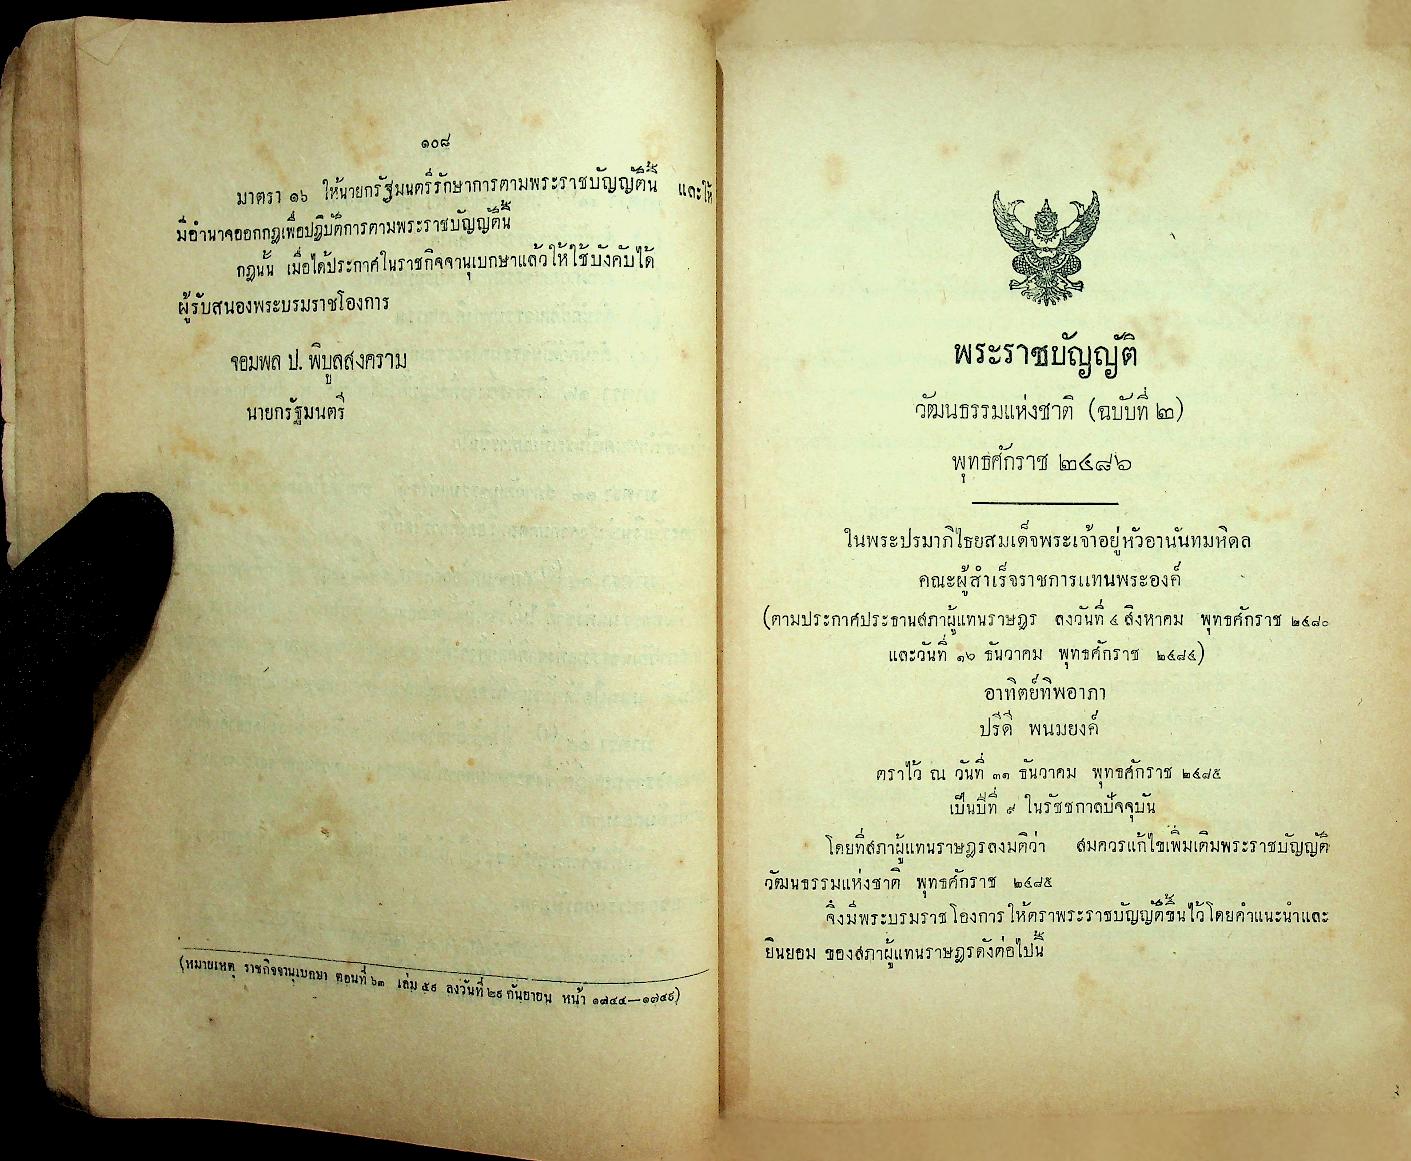 ๑๐๘
มาตรา ๑๖ ให้นายกรัฐมนตรีรักษาการตามพระราชบัญญัตินี้ และให้
มีอำนาจออกกฎเพื่อปฏิบัติการตามพระราชบัญญัตินี้
กฎนั้น เมื่อได้ประกาศในราชกิจจานุเบกษาแล้วให้ใช้บังคับได้
ผู้รับสนองพระบรมราชโองการ
จอมพล ป. พิบูลสงคราม
นายกรัฐมนตรี
(หมายเหตุ ราชกิจจานุเบกษา ตอนที่ ๖๓ เล่ม ๕๙ ลงวันที่ ๒๙ กันยายน หน้า ๑๗๔๔—๑๗๔๙)
พระราชบัญญัติ
วัฒนธรรมแห่งชาติ (ฉบับที่ ๒)
พุทธศักราช ๒๔๘๖
ในพระปรมาภิไธยสมเด็จพระเจ้าอยู่หัวอานันทมหิดล
คณะผู้สำเร็จราชการแทนพระองค์
(ตามประกาศประธานสภาผู้แทนราษฎร ลงวันที่ ๔ สิงหาคม พุทธศักราช ๒๔๘๐
และวันที่ ๑๖ ธันวาคม พุทธศักราช ๒๔๘๔)
อาทิตย์ทิพอาภา
ปรีดี พนมยงค์
ตราไว้ ณ วันที่ ๓๑ ธันวาคม พุทธศักราช ๒๔๘๕
เป็นปีที่ ๙ ในรัชชกาลปัจจุบัน
โดยที่สภาผู้แทนราษฎรลงมติว่า สมควรแก้ไขเพิ่มเติมพระราชบัญญัติ
วัฒนธรรมแห่งชาติ พุทธศักราช ๒๔๘๕
จึงมีพระบรมราชโองการให้ตราพระราชบัญญัติขึ้นไว้โดยคำแนะนำและ
ยินยอม ของสภาผู้แทนราษฎรดังต่อไปนี้